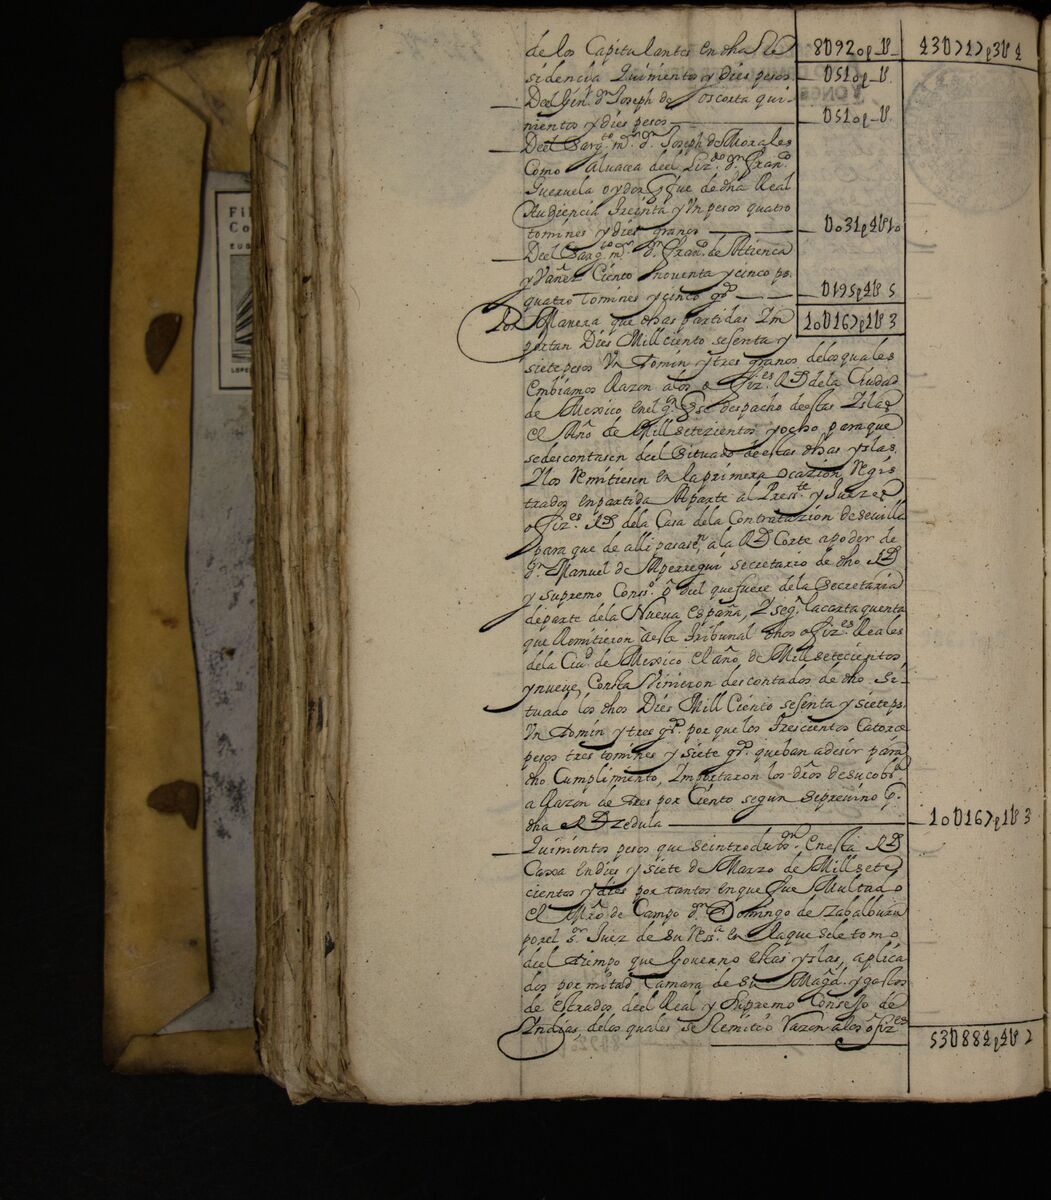 de los Capitulantes en dha Re 8U920p_U_ 43U717p3U4
sidencia Quinientos y dies pesos _ U510p_U.
Del Gen.l Dn Joseph de oscorta qui
nientos y dies pesos _ U510p_U.
Del Sarg.to m.r Dn Joseph de Morales
Como Aluacea del Liz.do Dn Fran.co
Gueruela oydor q fue de dha Real
Audiencia treinta y Vn pesos quatro
tomines y dies granos _ U031p4U10
Del Sarg.to m.r Dn Fran.co de Atienca
y Vañez Ciento nouenta y cinco ps.
quatro tomines y cinco gs _ U195p4U5
Por Manera que dhas partidas Im 10U167p1U3
portan Dies Mill ciento sesenta y
siete pesos Vn tomin y tres granos de los quales
embiamos Razon a los ofiz.es Rs de la Ciudad
de Mexico en el despacho de estas Islas
el Año de Mill setezientos y ocho para que
se descontasen del Situado de estas dhas yslas
Y los Remitiesen en la primera ocazion Regis
trados en partida Aparte al Press.te y Juezes
ofiz.es Rs de la Casa de la Contratazion de seuilla
para que de alli pasasen, a la Rl Corte a poder de
Dn Manuel de Aperregui secretario de dho Rl
y supremo Cons.o o del que fuere de la Secretaria
de parte de la Nueua españa, Y seg.n la carta quenta
que Remitieron a este tribunal dhos ofiz.es Reales
de la Ciu.d de Mexico el año de Mill setecientos
y nueue, Consta Vinieron descontados de dho Si-
tuado los dhos Dies Mill Ciento sesenta y siete ps.
Vn tomin y tres gs. por que los trescientos Catorce
pesos tres tomines y siete gs. que ban a desir para
dho Cumplimiento, Importaron los dros de su cobr.a
a Razon de tres por Ciento segun se preuino p.r
dha Rl Zedula _ 10U167p1U3
Quinientos pesos que se introdux.on en esta Rl
Caxa en dies y siete de Marzo de Mill sete
cientos y dies por tantos en que fue Multado
el Mro de Campo Dn Domingo de Zabalburu
por el s.r Juez de su Ress.a en la que se le tomo
del tiempo que Gouerno estas yslas, aplica
dos por mitad Camara de su Magd. y gastos
de estrados del Real y Supremo Consejo de
Indias, de los quales se Remitio Razon a los ofiz.es
53U884p4U2